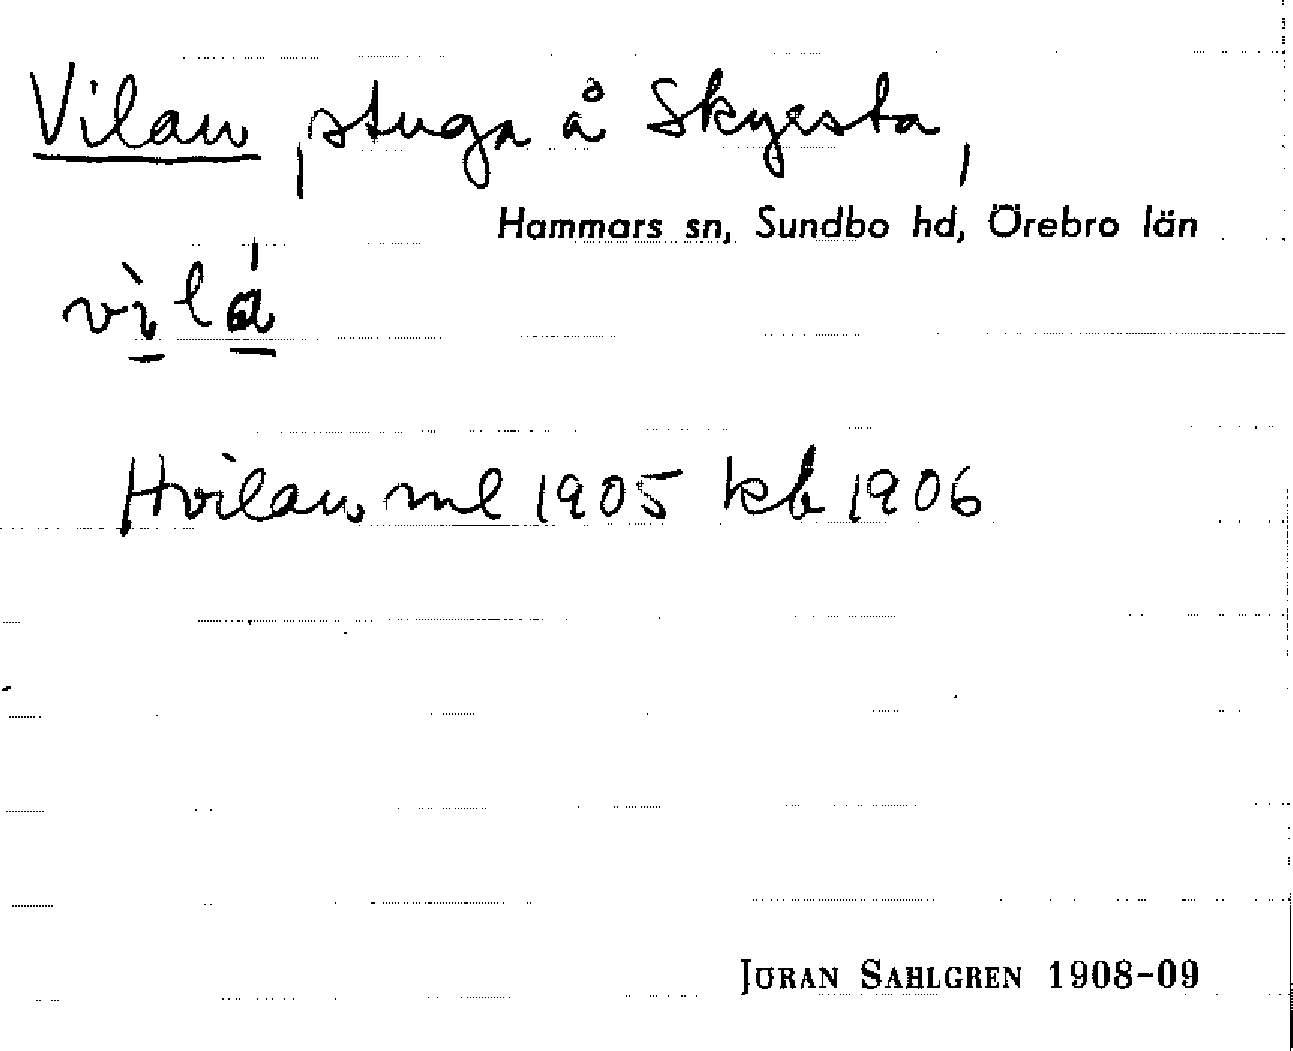 Vilan, stuga å Skyrsta,
Hammars sn, Sundbo hd, Örebro län
vìlá
Hvilan ml 1905 kb 1906
JÖRAN SAHLGREN 1908-09